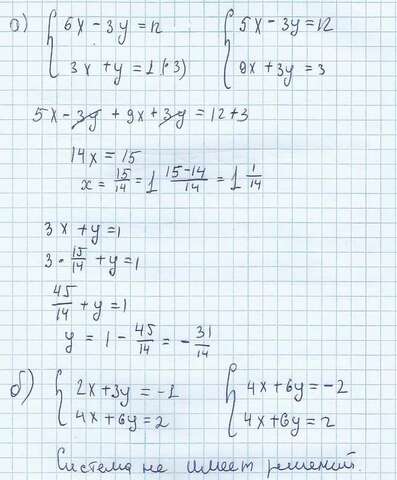 а) { 6x - 3y = 12 { 5x - 3y = 12
3x + y = 1 |·3) 9x + 3y = 3
5x - 3y + 9x + 3y = 12 + 3
14x = 15
x = 15/14 = 1 15-14/14 = 1 1/14
3x + y = 1
3 · 15/14 + y = 1
45/14 + y = 1
y = 1 - 45/14 = - 31/14
б) { 2x + 3y = -1 { 4x + 6y = -2
4x + 6y = 2 4x + 6y = 2
Система не имеет решений.